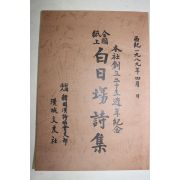 西紀一九八九年四月 日
本社創立二十五週年紀念
全國
紙上
白日場詩集
韓國漢詩協會支部
漢城文友社